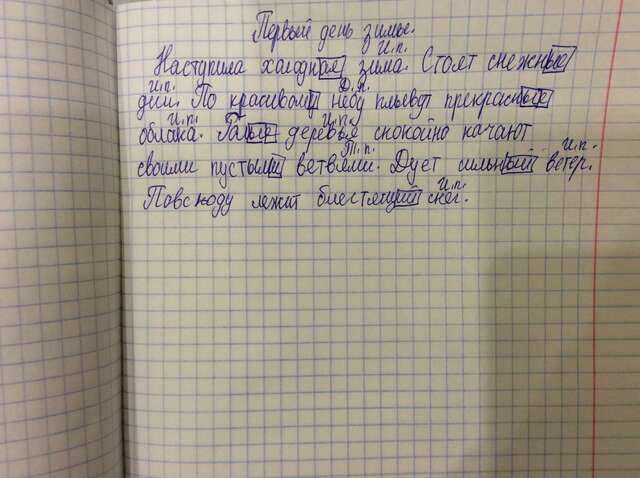 Первый день зимы.
И.п.
Наступила холодная зима. Стоят снежные
И.п. Д.п.
дни. По красивому небу плывут прекрасные
И.п. И.п.
облака. Голые деревья спокойно качают
Т.п. И.п.
своими пустыми ветвями. Дует сильный ветер.
И.п.
Повсюду лежит блестящий снег.